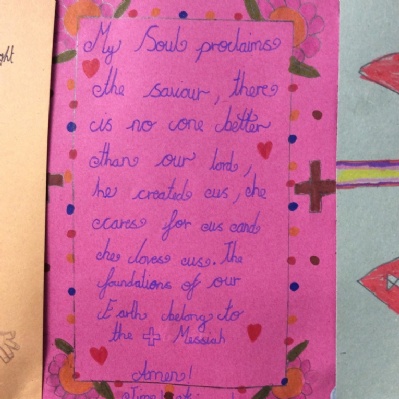 ght
My Soul proclaims
the saviour, there
is no one better
than our lord,
he created us, he
cares for us and
he loves us. The
foundations of our
Earth belong to
the Messiah
Amen!